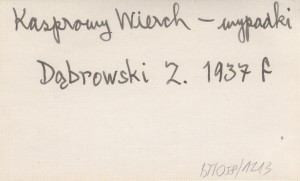 Kasprowy Wierch – wypadki
Dąbrowski Z. 1937 f